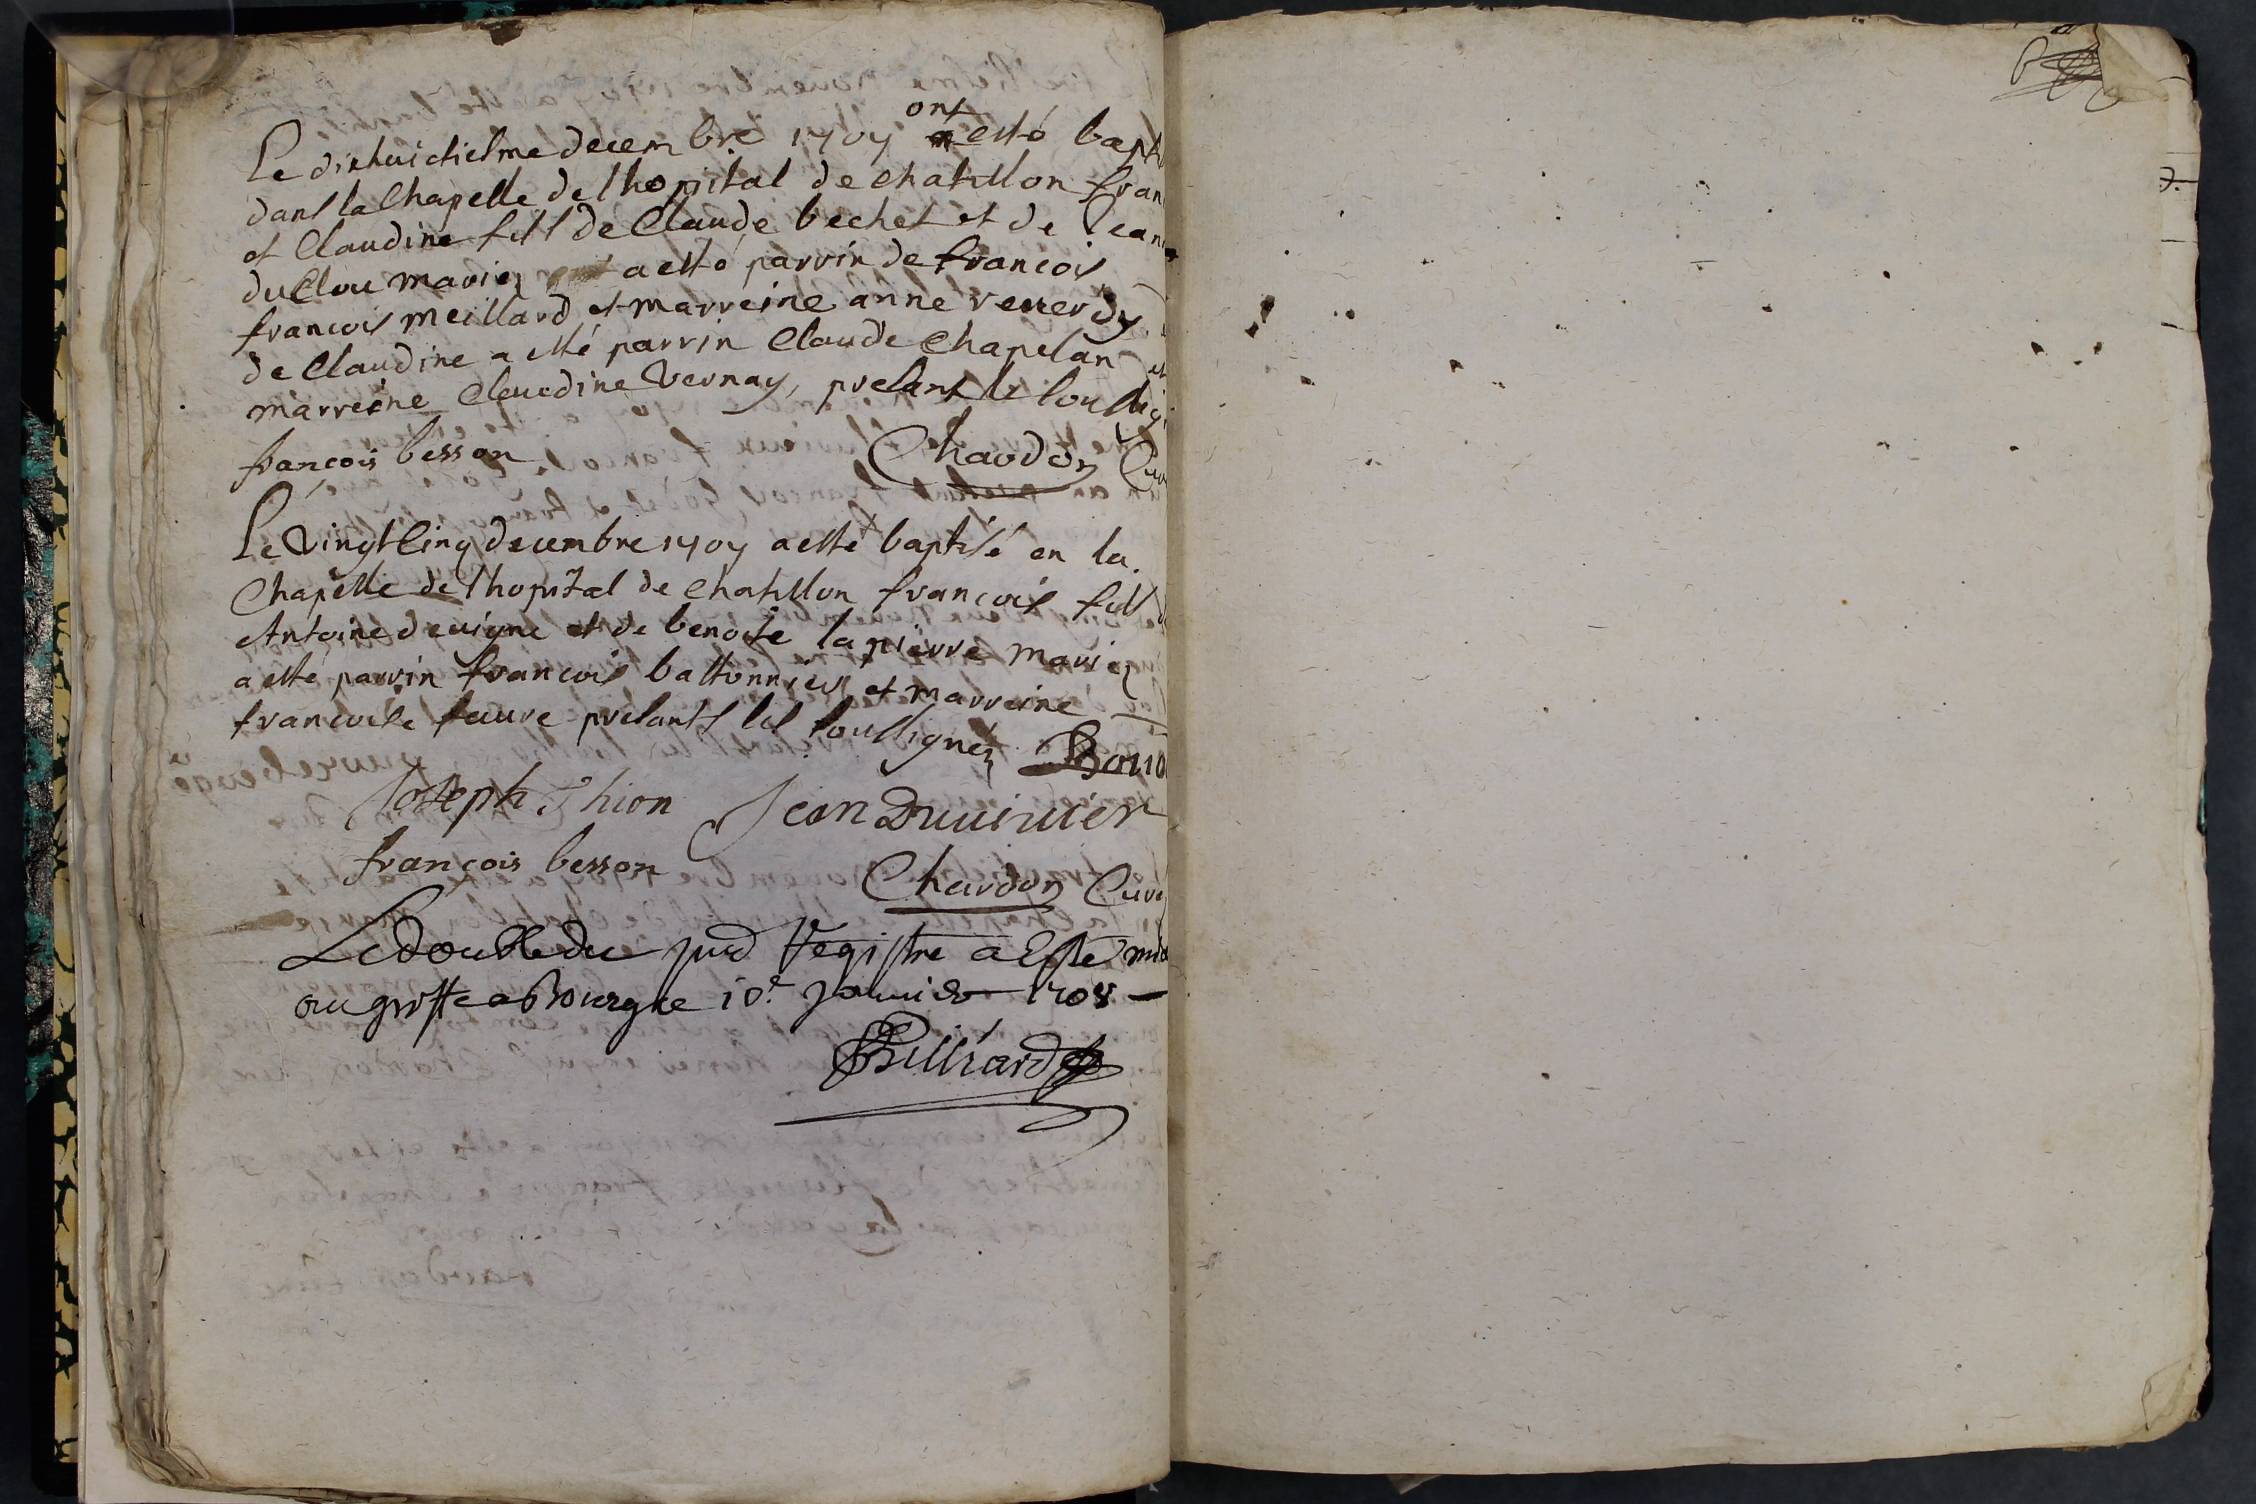 Le dixhuictiesme decembre 1707 ont esté bapt
dans la Chapelle de lhopital de chatillon fran
et Claudine fils de Claude bechet et de Jean
du Clou mariez a esté parrin de francois
francois meillard et marreine anne reverdy
de Claudine a esté parrin Claude Chapelan et
marreine Claudine Vernay, presents les soussig
françois besson Chardon Cur
Le Vingt cinq decembre 1707 a esté baptisé en la
Chapelle de lhopital de chatillon francois fils
Antoine devigne et de benoite lapierre mariez
a esté parrin francois bastonnier et marreine
francoise faure presants les soussignez
Joseph Thion Jean Duvivier
françois besson Chardon Curé
Le double du pnt Registre a Esté mis
au greffe a Bourg ce 10e Janvier 1708
Billiard